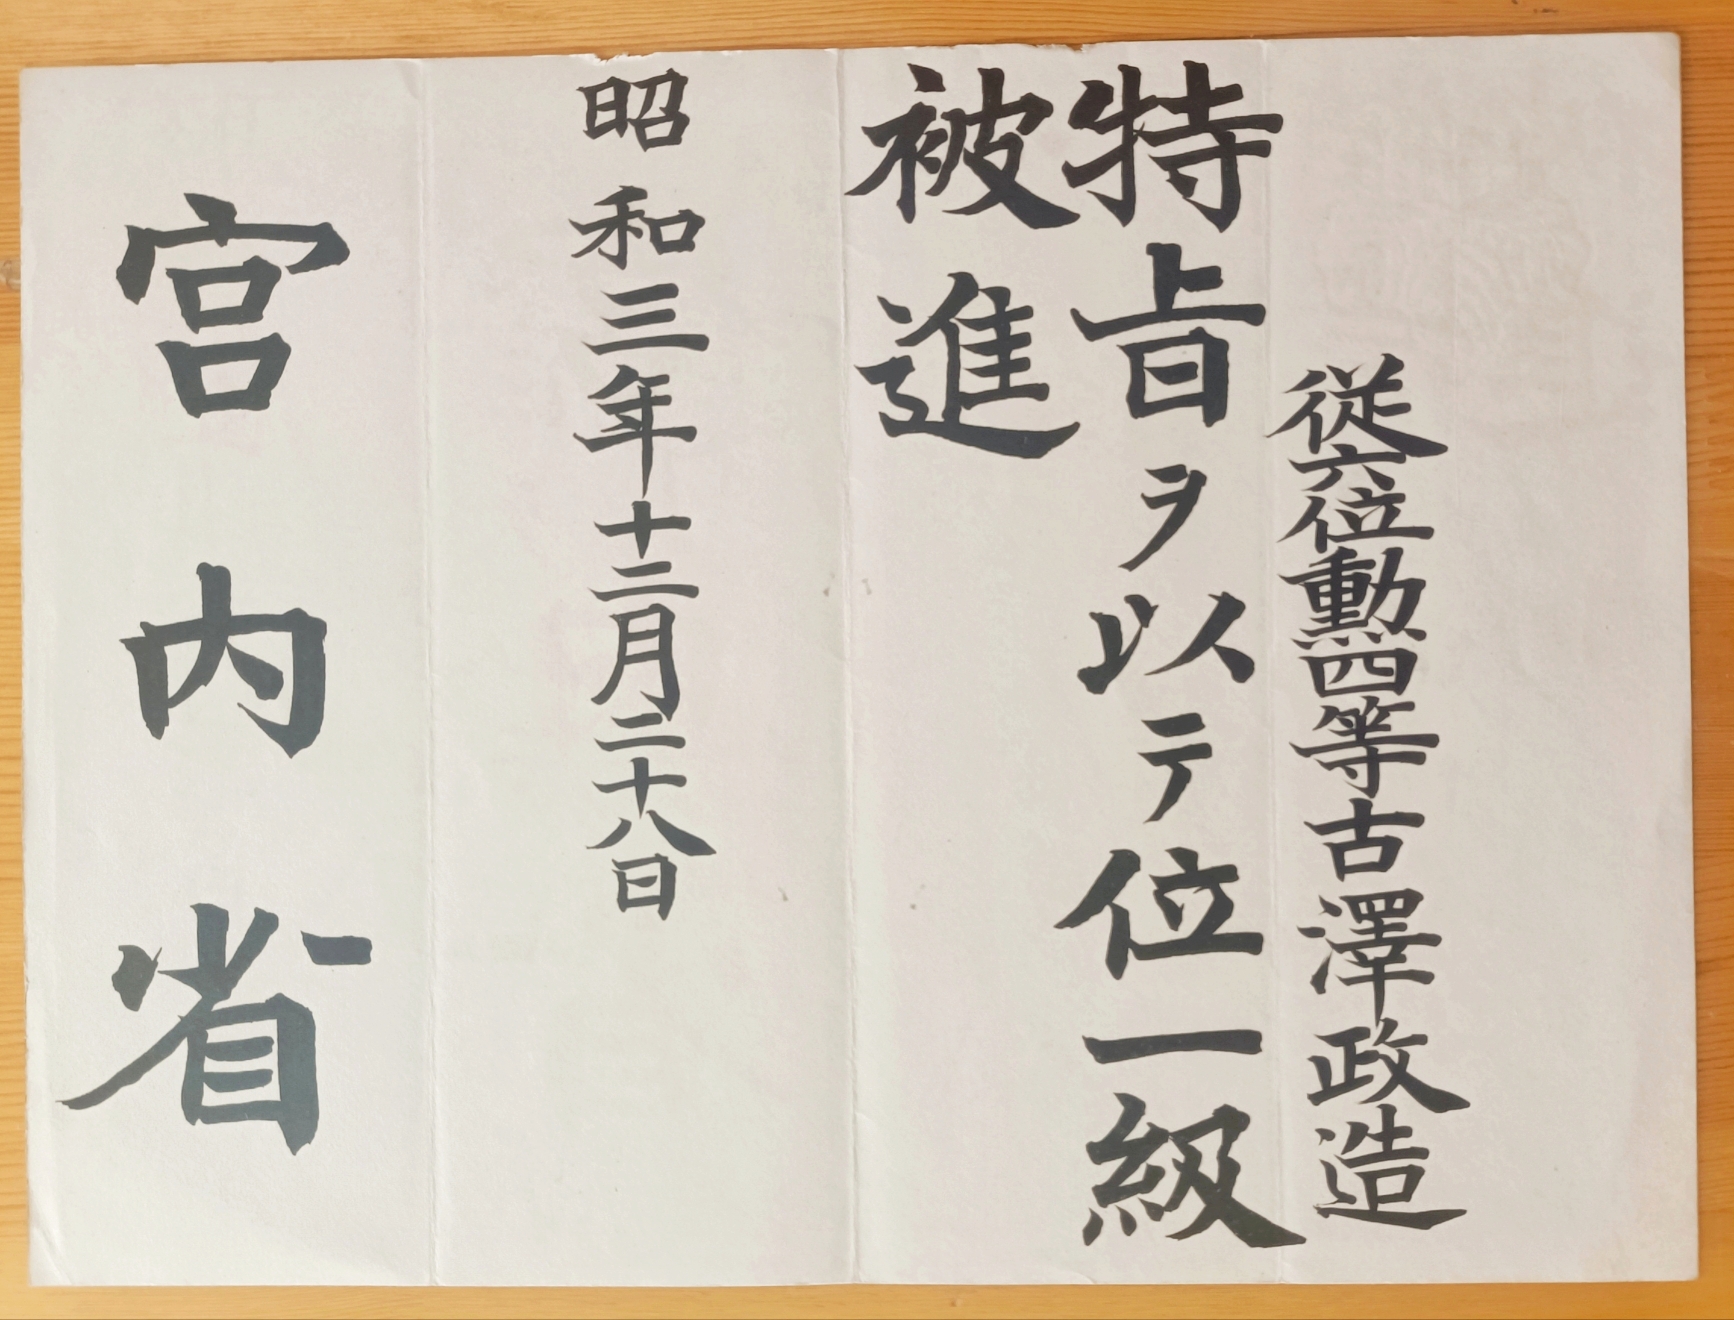 従六位勳四等古澤政造
特旨ヲ以テ位一級
被進
昭和三年十二月二十八日
宮内省